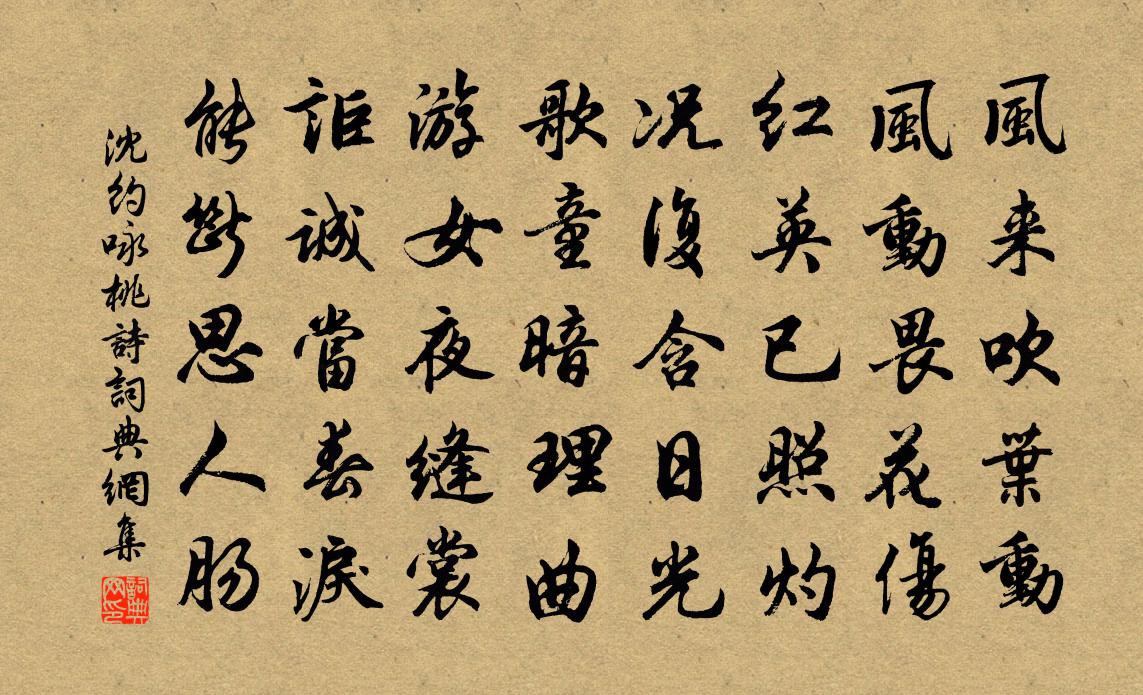 風来吹葉動
風動畏花傷
紅英已照灼
况復含日光
歌童暗理曲
游女夜縫裳
詎誠當春淚
能斷思人腸
沈約咏桃詩詞典網集
詞典网印